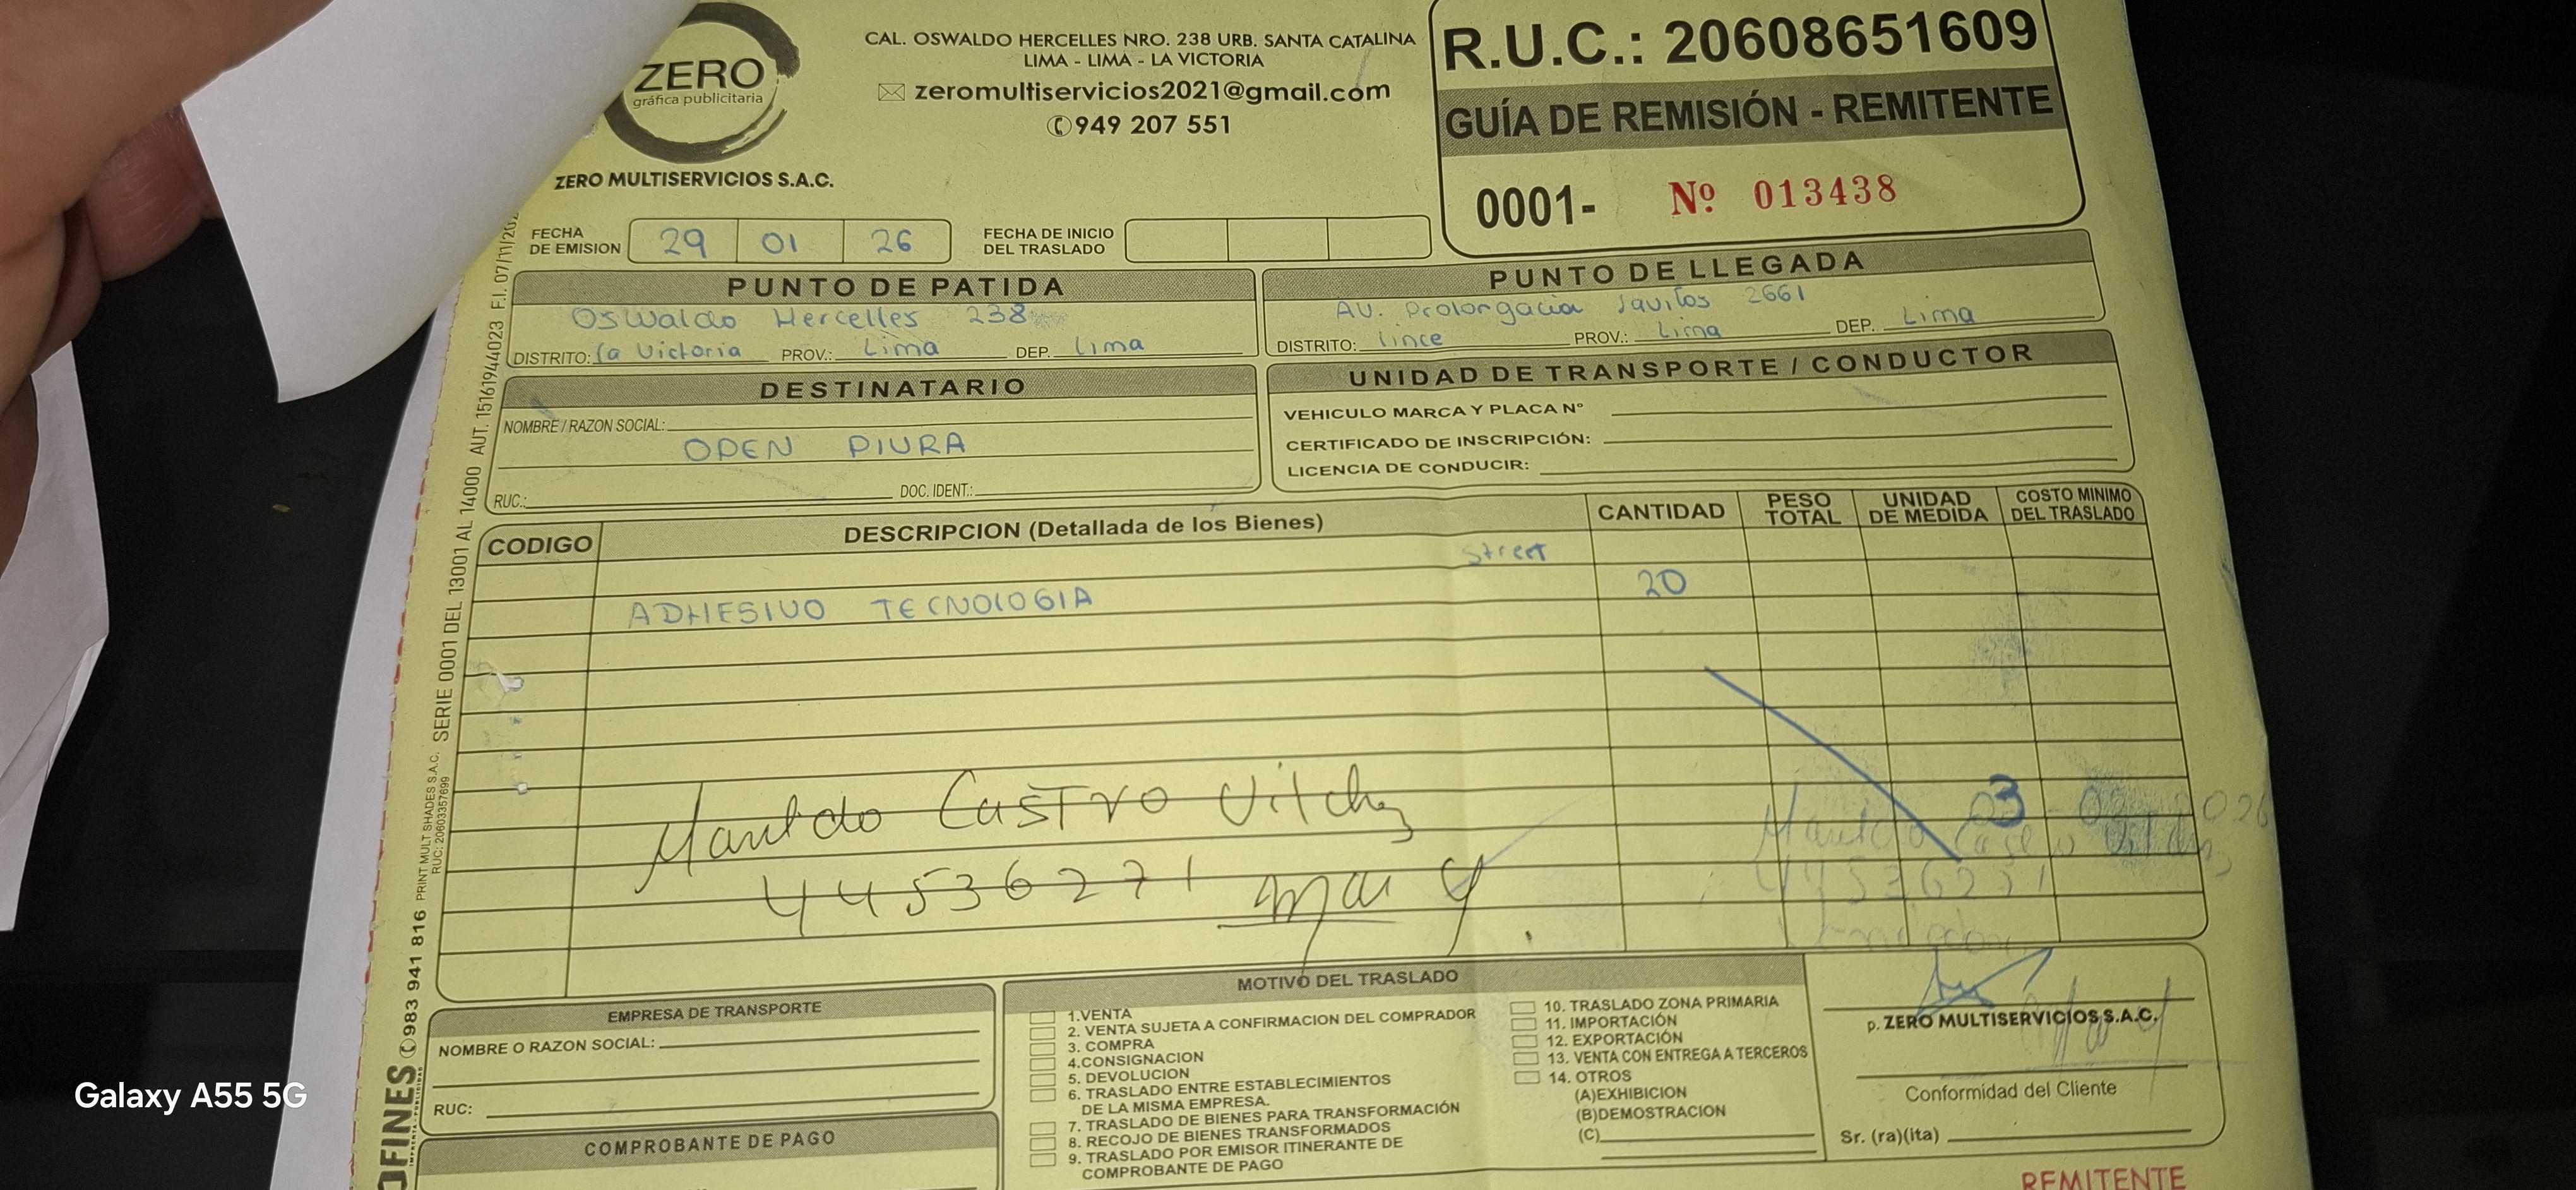 ZERO
gráfica publicitaria
ZERO MULTISERVICIOS S.A.C.
CAL. OSWALDO HERCELLES NRO. 238 URB. SANTA CATALINA
LIMA - LIMA - LA VICTORIA
zeromultiservicios2021@gmail.com
949 207 551
R.U.C.: 20608651609
GUÍA DE REMISIÓN - REMITENTE
0001- Nº 013438
FECHA DE EMISION 29 01 26
FECHA DE INICIO DEL TRASLADO
PUNTO DE PATIDA
Oswaldo Hercelles 238
DISTRITO: la Victoria PROV.: Lima DEP. Lima
PUNTO DE LLEGADA
Av. Prolorgacia 2661
DISTRITO: lince PROV.: Lima DEP. Lima
DESTINATARIO
NOMBRE / RAZON SOCIAL:
OPEN PIURA
RUC.: DOC. IDENT.:
UNIDAD DE TRANSPORTE / CONDUCTOR
VEHICULO MARCA Y PLACA Nº
CERTIFICADO DE INSCRIPCIÓN:
LICENCIA DE CONDUCIR:
CODIGO DESCRIPCION (Detallada de los Bienes) CANTIDAD PESO TOTAL UNIDAD DE MEDIDA COSTO MINIMO DEL TRASLADO
Street
ADHESIVO TECNOLOGIA 20
Castro Vilchez
44536271
EMPRESA DE TRANSPORTE
NOMBRE O RAZON SOCIAL:
RUC:
COMPROBANTE DE PAGO
MOTIVO DEL TRASLADO
1.VENTA
2. VENTA SUJETA A CONFIRMACION DEL COMPRADOR
3. COMPRA
4.CONSIGNACION
5. DEVOLUCION
6. TRASLADO ENTRE ESTABLECIMIENTOS
DE LA MISMA EMPRESA.
7. TRASLADO DE BIENES PARA TRANSFORMACIÓN
8. RECOJO DE BIENES TRANSFORMADOS
9. TRASLADO POR EMISOR ITINERANTE DE
COMPROBANTE DE PAGO
10. TRASLADO ZONA PRIMARIA
11. IMPORTACIÓN
12. EXPORTACIÓN
13. VENTA CON ENTREGA A TERCEROS
14. OTROS
(A)EXHIBICION
(B)DEMOSTRACION
(C)
p. ZERO MULTISERVICIOS S.A.C.
Conformidad del Cliente
Sr. (ra)(ita)
REMITENTE
983 941 816 PRINT MULT SHADES S.A.C. RUC: 20603357699 SERIE 0001 DEL 13001 AL 14000 AUT. 15161944023 F.I. 07/11/
Galaxy A55 5G